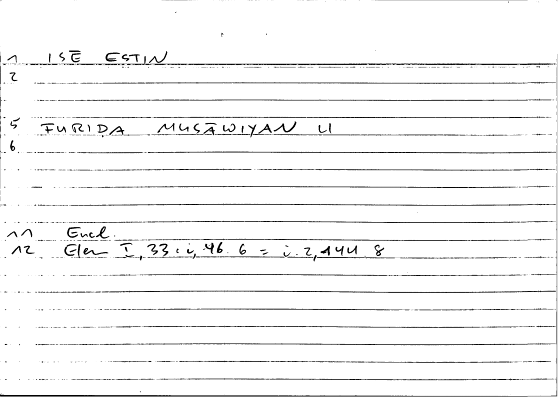 1 ISĒ ESTIN
2
5 FURIDA MUSĀWIYAN LI
6
11 Eucl.
12 Elem I, 33 : i, 46. 6 = i. 2, 144 8